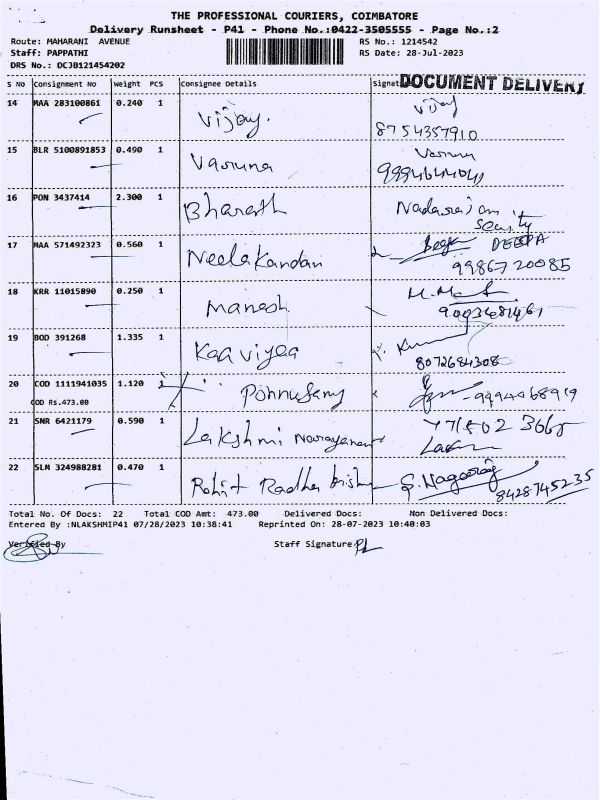 THE PROFESSIONAL COURIERS, COIMBATORE
Delivery Runsheet - P41 - Phone No.:0422-3505555 - Page No.:2
Route: MAHARANI AVENUE RS No.: 1214542
Staff: PAPPATHI RS Date: 28-Jul-2023
DRS No.: DCJB121454202
DOCUMENT DELIVERY
S NO Consignment No Weight PCS Consignee Details Signat
14 MAA 283100861 0.240 1 Vijay. Vijay
8754357910
15 BLR 5100891853 0.490 1 Varuna Varuna
16 PON 3437414 2.300 1 Bharath Nadarajan
Security
17 MAA 571492323 0.560 1 Neelakandan DEEPA
99867 20085
18 KRR 11015890 0.250 1 Manesh
9003681461
19 BOD 391268 1.335 1 Kaaviyaa
8072684308
20 COD 1111941035 1.120 1 Ponnusamy 9994068919
COD Rs.473.00
21 SNR 6421179 0.590 1 Lakshmi Narayanan
22 SLM 324988281 0.470 1 Rohit Radha krishna S. Nagaraj
8428745235
Total No. Of Docs: 22 Total COD Amt: 473.00 Delivered Docs: Non Delivered Docs:
Entered By :NLAKSHMIP41 07/28/2023 10:38:41 Reprinted On: 28-07-2023 10:40:03
Verified By Staff Signature